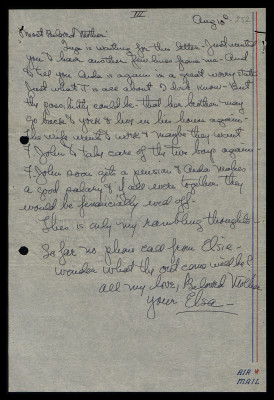 III
Aug 10
Most Beloved Mother
Inga is waiting for this letter - I just wanted
you to hear another few lines from me. And
to tell you Anda is again in a great worry state
Just what it is all about I don't know - But
the possibility could be - that her brother may
go back to york & live in his house again -
The wife wants to work & maybe they want
John to take care of the two boys again -
If John soon gets a pension & Anda makes
a good salary & if all were together they
would be financially well off -
This is only my rambling thoughts -
So far no phone call from Elsie -
wonder what the outcome will be?
all my love, Beloved Mother
your Elsa -
AIR
MAIL